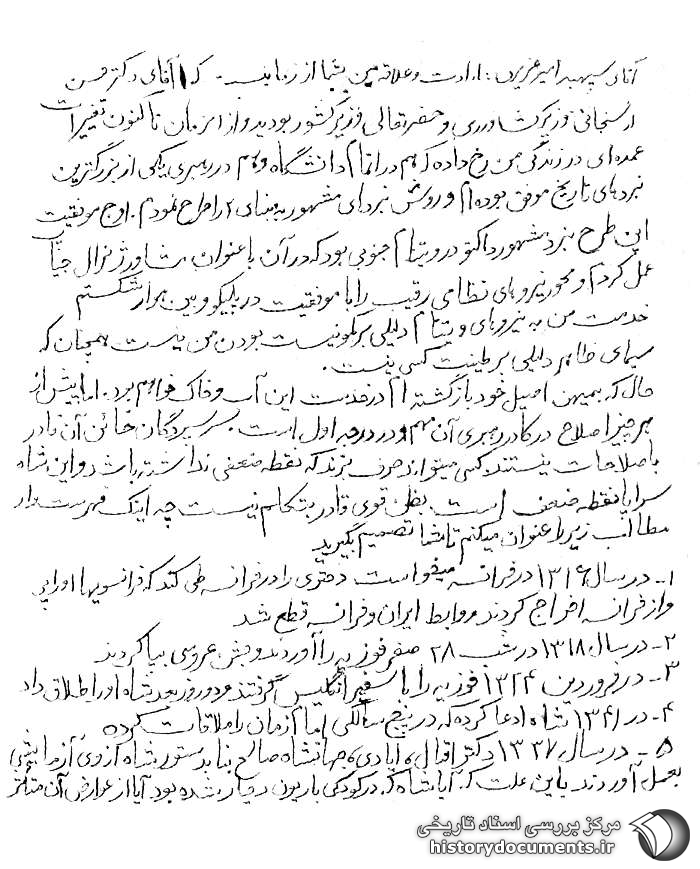 آقای سپهبد امیر عزیزی: ارادت و علاقه من بشما از زمانیست که آقای دکتر حسن
ارسنجانی وزیر کشاورزی و حضرتعالی وزیر کشور بودید و از آنزمان تاکنون تغییرات
عمده‌ای در زندگی من رخ داده که هم در اتمام دانشگاه و هم در رهبری یکی از بزرگترین
نبردهای تاریخ موفق بوده‌ام و روش نبردای مشهور به مبنای ۲ را طرح نمودم. اوج موفقیت
این طرح نبرد مشهور داکتو در ویتنام جنوبی بود که در آن با عنوان مشاور ژنرال جیاپ
عمل کردم و محور نیروهای نظامی رقیب را با موفقیت در پلیکو و بین هوا در شکستم
خدمت من به نیروهای ویتنام دلیلی بر کمونیست بودن من نیست همچنان که
سیمای ظاهر دلیلی بر طینت کسی نیست.
حال که بمیهن اصیل خود بازگشته‌ام در خدمت این آب و خاک خواهم بود. اما پیش از
هر چیز اصلاح در کادر رهبری آن مهم و در درجه اول است. سرسپردگان خائن آن قادر
باصلاحات نیستند کسی میتواند حرف بزند که نقطه ضعفی نداشته باشد و این شاه
سراپا نقطه ضعف است. بظن قوی قادر بتکلم نیست چه اینک فهرست‌وار
مطالب زیر را عنوان میکنم تا شما تصمیم بگیرید
۱- در سال ۱۳۱۶ در فرانسه میخواست دختری را در فرانسه طی کند که فرانسویها او را
و از فرانسه اخراج کردند و روابط ایران و فرانسه قطع شد
۲- در سال ۱۳۱۸ در شب ۲۸ صفر فوزیه را آوردند و جشن عروسی بپا کردند
۳- در فروردین ۱۳۲۴ فوزیه را با سفیر انگلیس گرفتند و دو روز بعد شاه او را طلاق داد
۴- در ۱۳۴۱ شاه ادعا کرده که در پنج سالگی امام زمان را ملاقات کرده
۵- در سال ۱۳۳۷ دکتر اقبال، ایادی، جهانشاه صالح بنا بدستور شاه از وی آزمایشی
بعمل آوردند باین علت که آیا شاه که در کودکی باریون دچار شده بود آیا از عوارض آن متأثر
مرکز بررسی اسناد تاریخی
historydocuments.ir